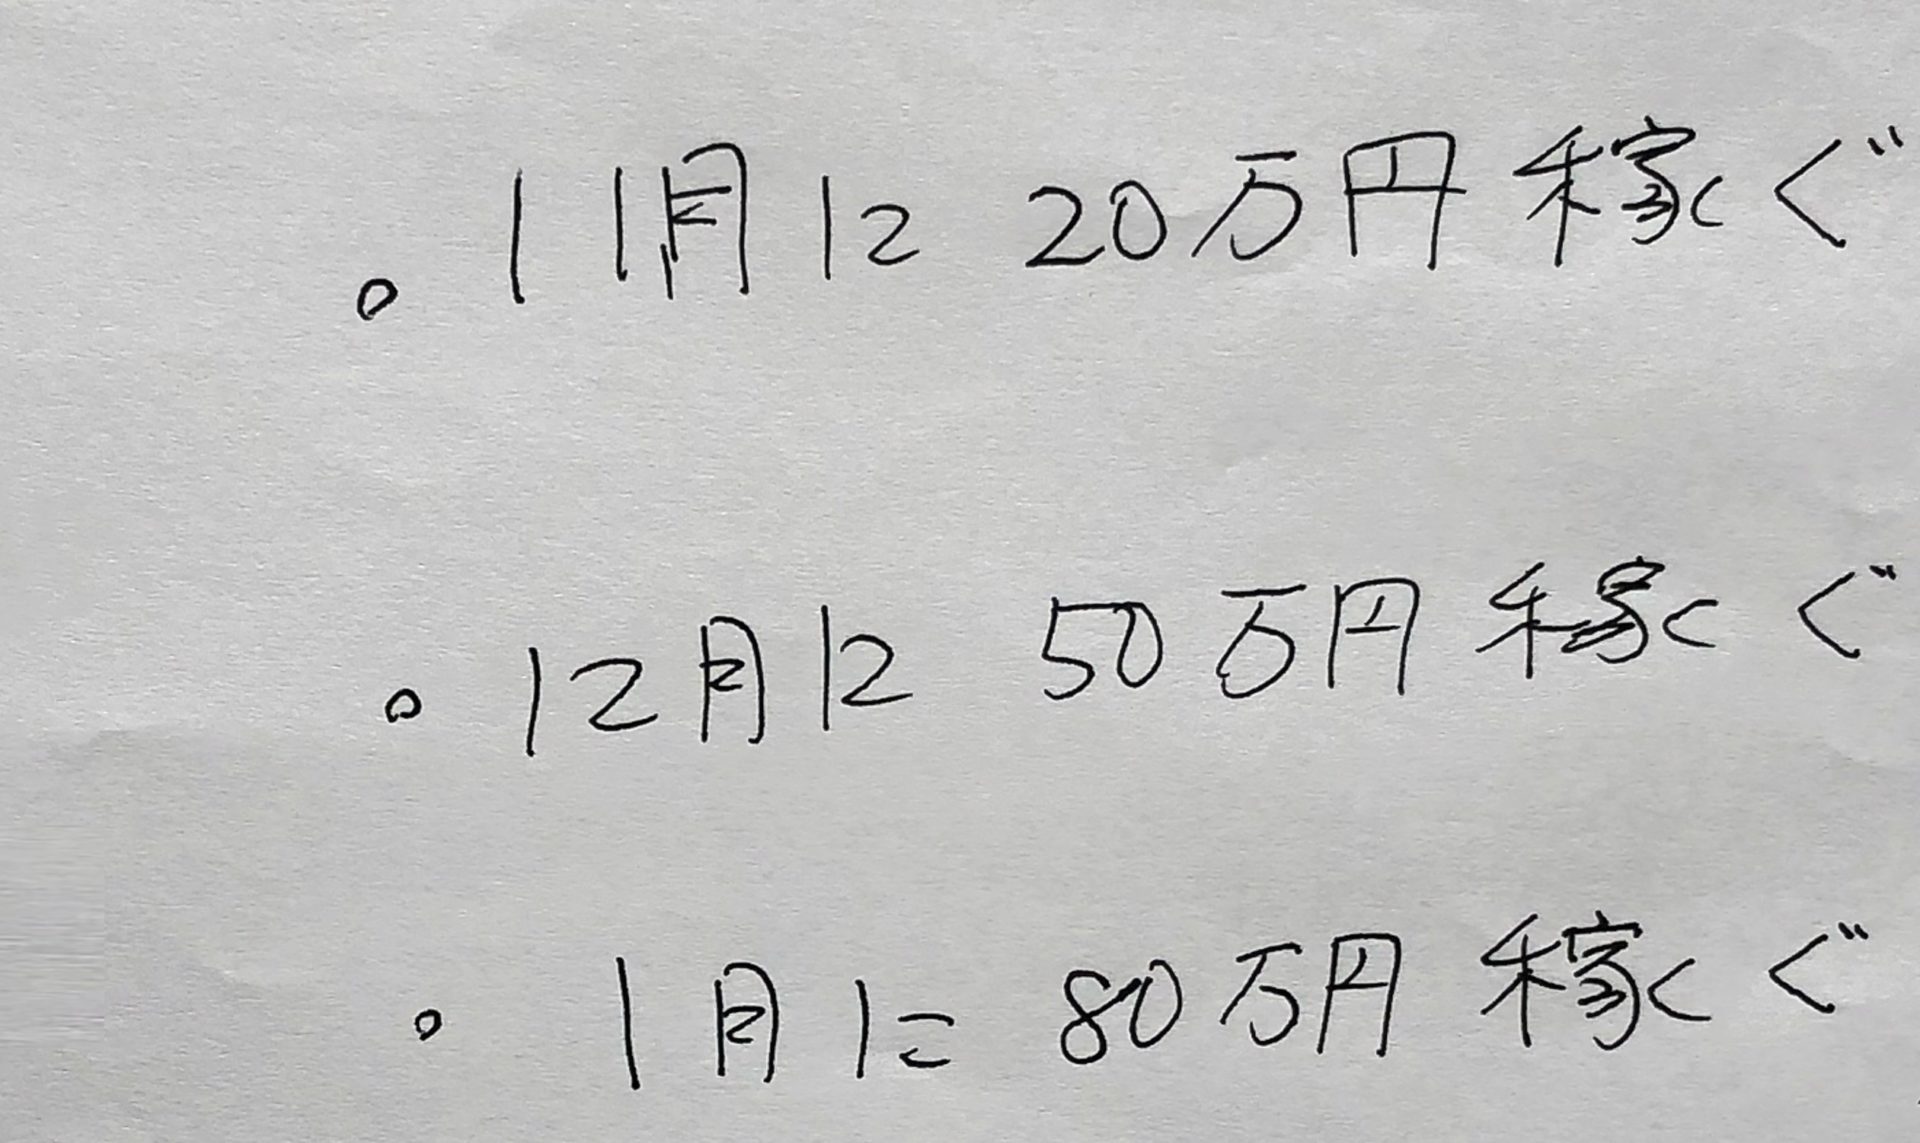 。11月に 20万円稼ぐ
。12月に 50万円稼ぐ
。1月に 80万円稼ぐ